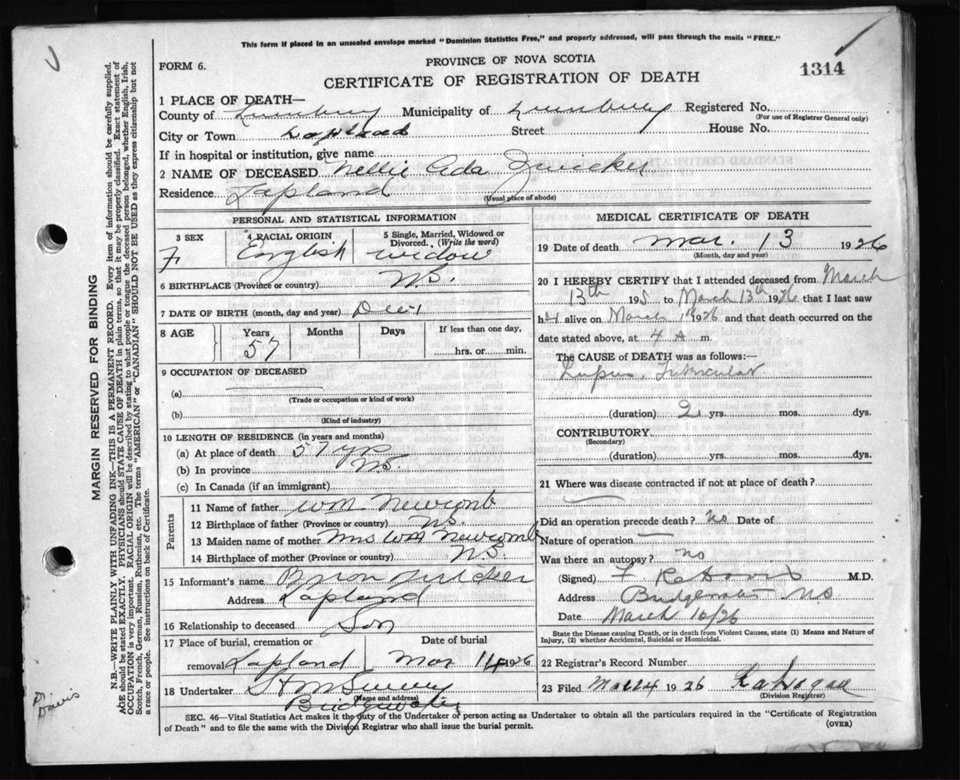 This form if placed in an unsealed envelope marked "Dominion Statistics Free," and properly addressed, will pass through the mails "FREE."
FORM 6.
PROVINCE OF NOVA SCOTIA
CERTIFICATE OF REGISTRATION OF DEATH
1314
1 PLACE OF DEATH—
County of Lunenburg Municipality of Lunenburg Registered No.
(For use of Registrar General only)
City or Town Lapland Street House No.
If in hospital or institution, give name
2 NAME OF DECEASED Nellie Ada Zwicker
Residence Lapland
(Usual place of abode)
PERSONAL AND STATISTICAL INFORMATION
3 SEX 4 RACIAL ORIGIN 5 Single, Married, Widowed or Divorced. (Write the word)
F English widow
6 BIRTHPLACE (Province or country) N.S.
7 DATE OF BIRTH (month, day and year)
8 AGE Years Months Days If less than one day,
57 hrs. or min.
9 OCCUPATION OF DECEASED
(a)
(Trade or occupation or kind of work)
(b)
(Kind of industry)
10 LENGTH OF RESIDENCE (in years and months)
(a) At place of death 57 yrs
(b) In province N.S.
(c) In Canada (if an immigrant)
Parents
11 Name of father Wm Newcomb
12 Birthplace of father (Province or country) N.S.
13 Maiden name of mother Mrs Wm Newcomb
14 Birthplace of mother (Province or country) N.S.
15 Informant's name Byron Zwicker
Address Lapland
16 Relationship to deceased Son
17 Place of burial, cremation or removal Lapland Date of burial Mar 14 1926
18 Undertaker
(Name and address)
Bridgewater
MEDICAL CERTIFICATE OF DEATH
19 Date of death Mar. 13 1926
(Month, day and year)
20 I HEREBY CERTIFY that I attended deceased from March
13th 195 to March 13th 1926 that I last saw
her alive on March 1 1926 and that death occurred on the
date stated above, at 4 A m.
The CAUSE OF DEATH was as follows:—
Lupus, Tubercular
(duration) 2 yrs. mos. dys.
CONTRIBUTORY
(Secondary)
(duration) yrs. mos. dys.
21 Where was disease contracted if not at place of death?
Did an operation precede death? No Date of
Nature of operation
Was there an autopsy? no
(Signed) F R Davis M.D.
Address Bridgewater NS
Date March 16/26
State the Disease causing Death, or in death from Violent Causes, state (1) Means and Nature of Injury, (2) whether Accidental, Suicidal or Homicidal.
22 Registrar's Record Number
23 Filed Mar 24 1926
(Division Registrar)
SEC. 46—Vital Statistics Act makes it the duty of the Undertaker or person acting as Undertaker to obtain all the particulars required in the "Certificate of Registration
of Death" and to file the same with the Division Registrar who shall issue the burial permit.
(OVER)
MARGIN RESERVED FOR BINDING
N.B.—WRITE PLAINLY WITH UNFADING INK—THIS IS A PERMANENT RECORD. Every item of information should be carefully supplied.
AGE should be stated EXACTLY. PHYSICIANS should STATE CAUSE OF DEATH in plain terms, so that it may be properly classified. Exact statement of
OCCUPATION is very important. RACIAL ORIGIN will be described by stating to what people or tongue the deceased person belonged, whether English, Irish,
Scotch, French, German, Russian, Ruthenian, etc. The terms "AMERICAN" or "CANADIAN" SHOULD NOT BE USED as they express citizenship but not
a race or people. See instructions on back of Certificate.
Davis